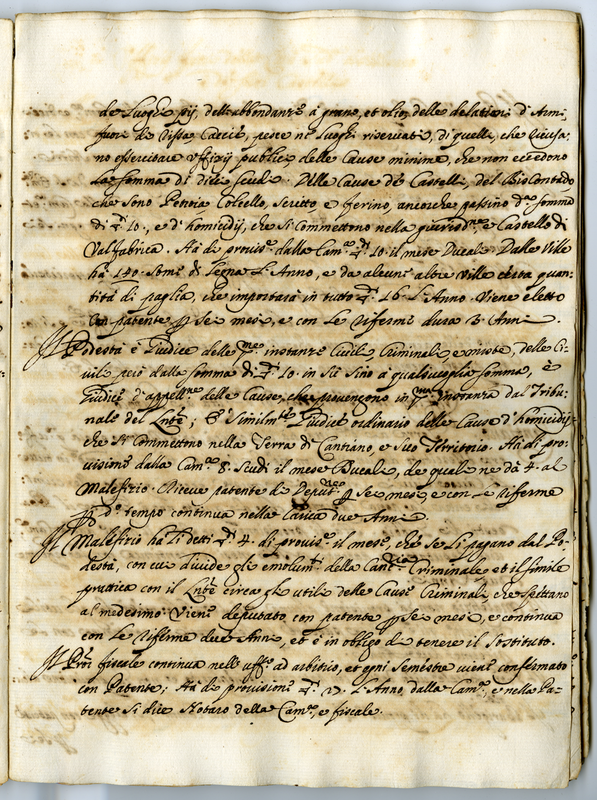 de Luoghi pij, dell'abbondanze à grano, et olio, delle delationi d'Armi,
fuori di Rissa, Caccie, pesce ne Luoghi riservati, di quelli, che ricusa-
no essercitare uffizij publici, delle Cause minime, che non eccedono
la somma di dieci scudi. Alle Cause de Castelli, del
che sono Penna Colcello, Scritto e ferino, ancorche passino d.a somma
di 10., e d'homicidij, che si commettono nella e Castello di
Valfabrica. Hà di provis.e dalla Cam.a 10. il mese Ducali. Dalle Ville
hà 140. Some di Legna l'Anno, e da alcune altre Ville certa quan-
tità di paglia, che importarà in tutto 16. l'Anno. Viene eletto
con patente p sei mesi, e con le riferme dura 3. Anni.
Il Podestà è Giudice delle p.me instanze Civili, Criminali, e miste, delle Ci-
vili però dalla somma di 10. in sù sino à qualsivoglia somma, è
Giudice d'appell.ne delle Cause, che provengono in instanza dal Tribu-
nale del ; È similm.te Giudice ordinario delle Cause d'homicidij,
che si commettono nella Terra di Cantiano, e suo Territorio. Hà di pro-
visione dalla Cam.a 8. Scudi il mese Ducali, de quali ne dà 4. al
Malefizio. Riceve patente di p sei mesi, e con le riferme
p d.o tempo continua nella Carica due Anni.
Il Malefizio hà li detti 4. di provis.e il mese, che se li pagano dal Po-
destà, con cui divide gli emolum.ti della Criminale, et il simile
prattica con il circa gli utili delle Cause Criminali, che spettano
al medesimo. Viene deputato con patente p sei mesi, e continua
con le riferme due Anni, et è in obligo di tenere il Sostituto.
Il fiscale continua nell'uff.o ad arbitrio, et ogni Semestre viene confermato
con Patente; Hà di provisione l'Anno, dalla Cam.a, e nella Pa-
tente si dice Notaro della Cam.a, e fiscale.